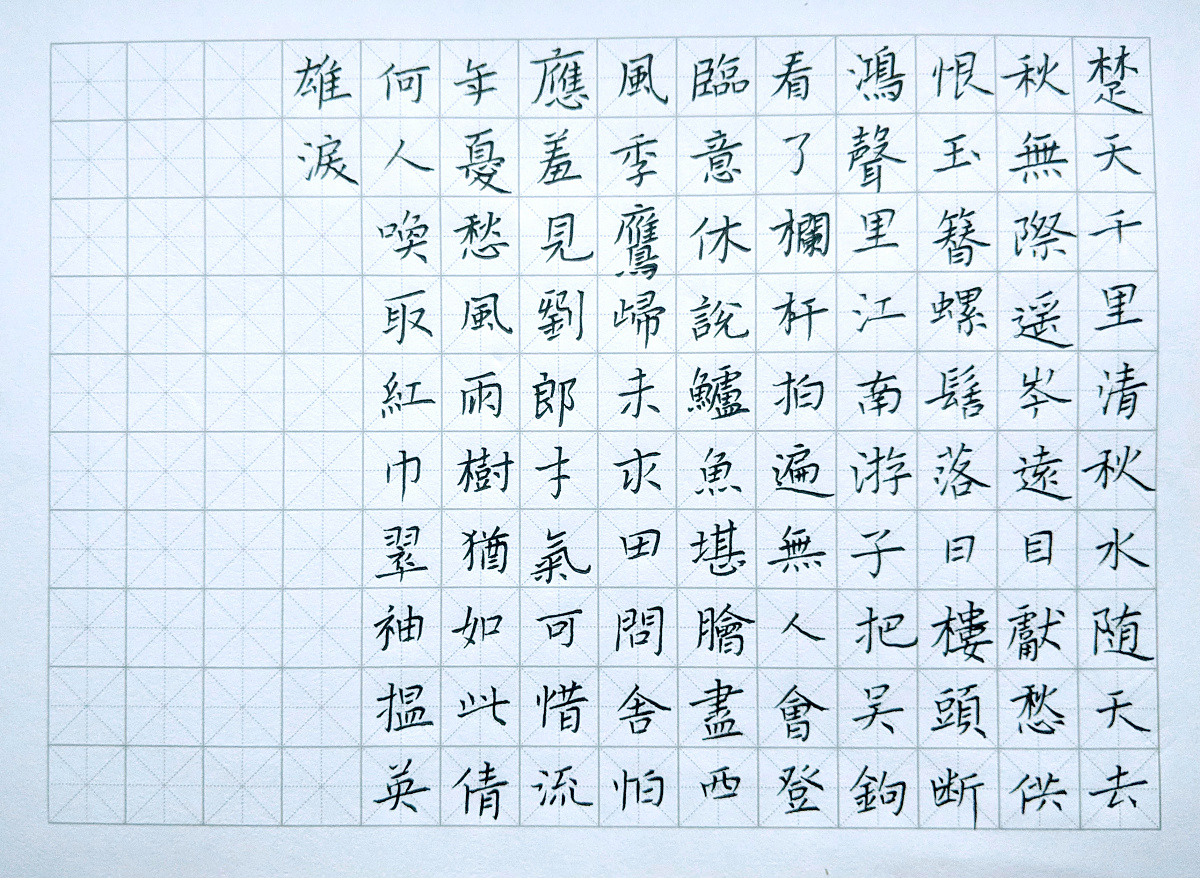 楚天千里清秋水随天去
秋無際遥岑遠目獻愁供
恨玉簪螺髻落日樓頭断
鴻聲里江南游子把吴鉤
看了欄杆拍遍無人會登
臨意休說鱸魚堪膾盡西
風季鷹㱕未求田問舍怕
應羞見劉郎才氣可惜流
年憂愁風雨樹猶如此倩
何人喚取紅巾翠袖揾英
雄淚